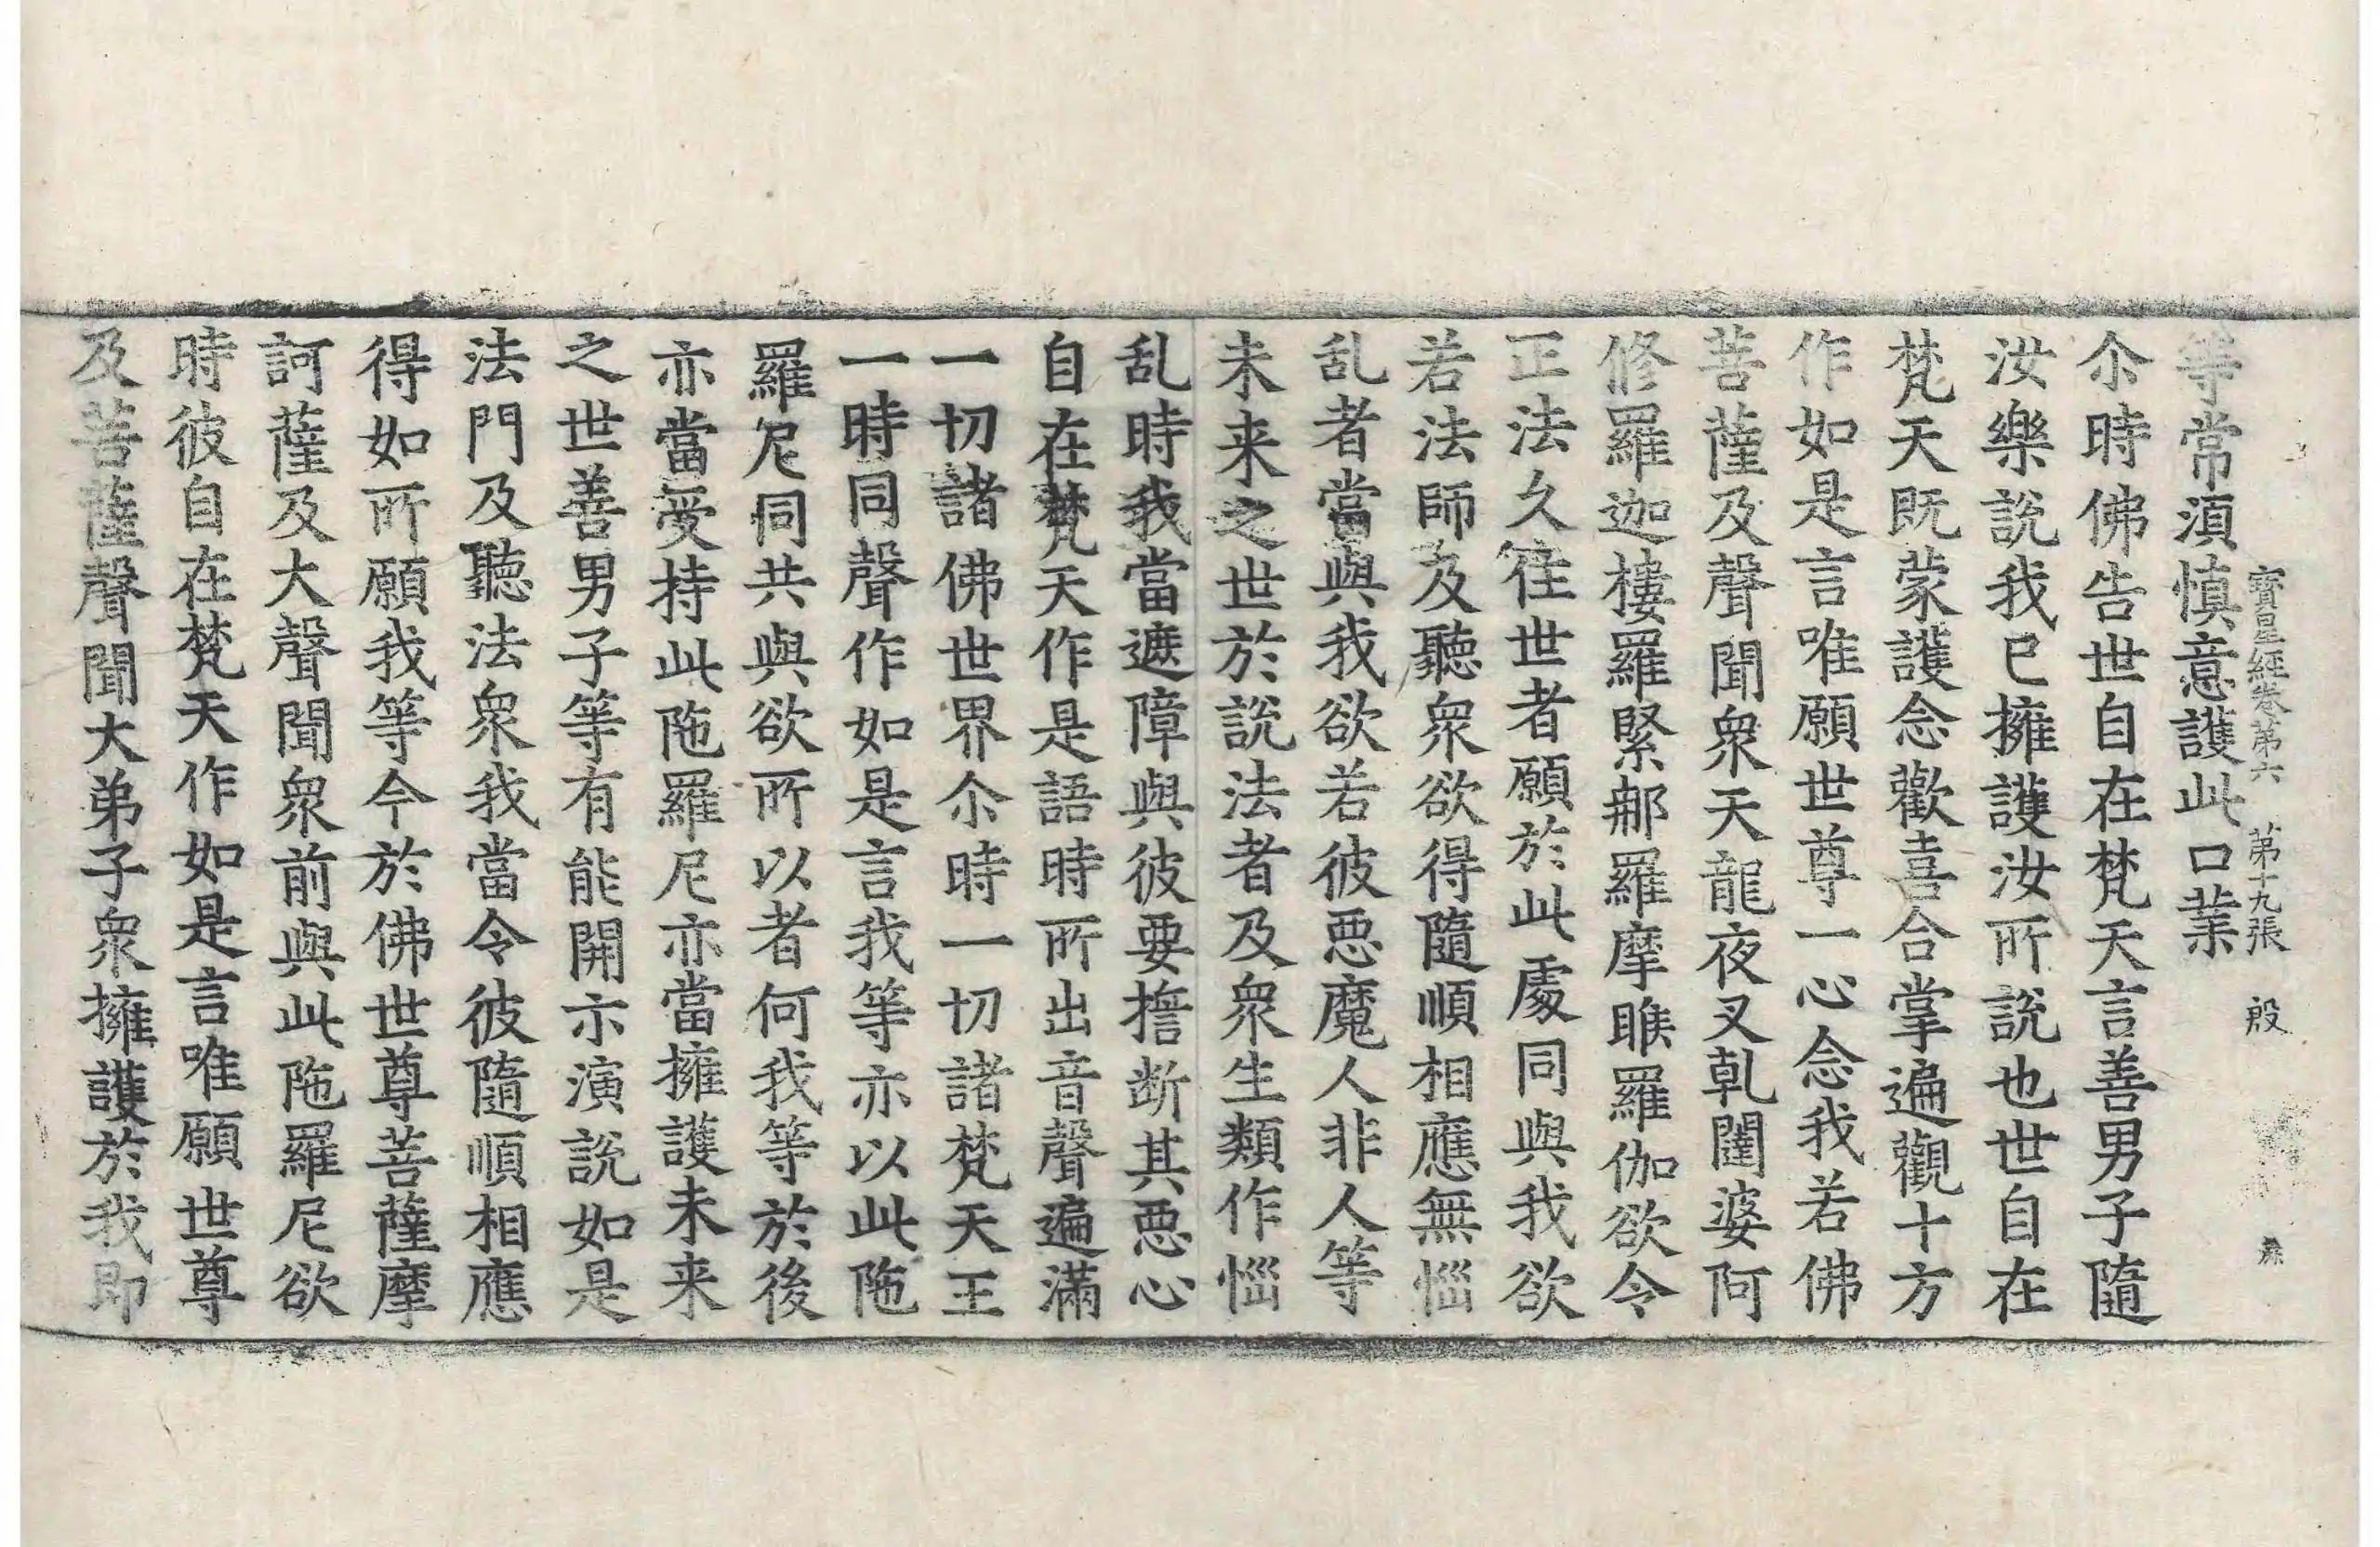 寳星經卷第六 第十九張 殷
等常湏慎意護此口業
尒時佛告世自在梵天言善男子隨
汝樂說我已擁護汝所說也世自在
梵天既蒙護念歡喜合掌遍觀十方
作如是言唯願世尊一心念我若佛
菩薩及聲聞衆天龍夜叉乹闥婆阿
修羅迦樓羅緊郍羅摩睺羅伽欲令
正法久住世者願於此處同與我欲
若法師及聽衆欲得隨順相應無惱
乱者當與我欲若彼惡魔人非人等
未来之世於說法者及衆生類作惱
乱時我當遮障與彼要擔断其惡心
自在梵天作是語時所出音聲遍滿
一切諸佛世界尒時一切諸梵天王
一時同聲作如是言我等亦以此陁
羅尼同共與欲所以者何我等於後
亦當受持此陁羅尼亦當擁護未来
之世善男子等有能開示演說如是
法門及聽法衆我當令彼隨順相應
得如所願我等今於佛世尊菩薩摩
訶薩及大聲聞衆前與此陁羅尼欲
時彼自在梵天作如是言唯願世尊
及菩薩聲聞大弟子衆擁護於我即